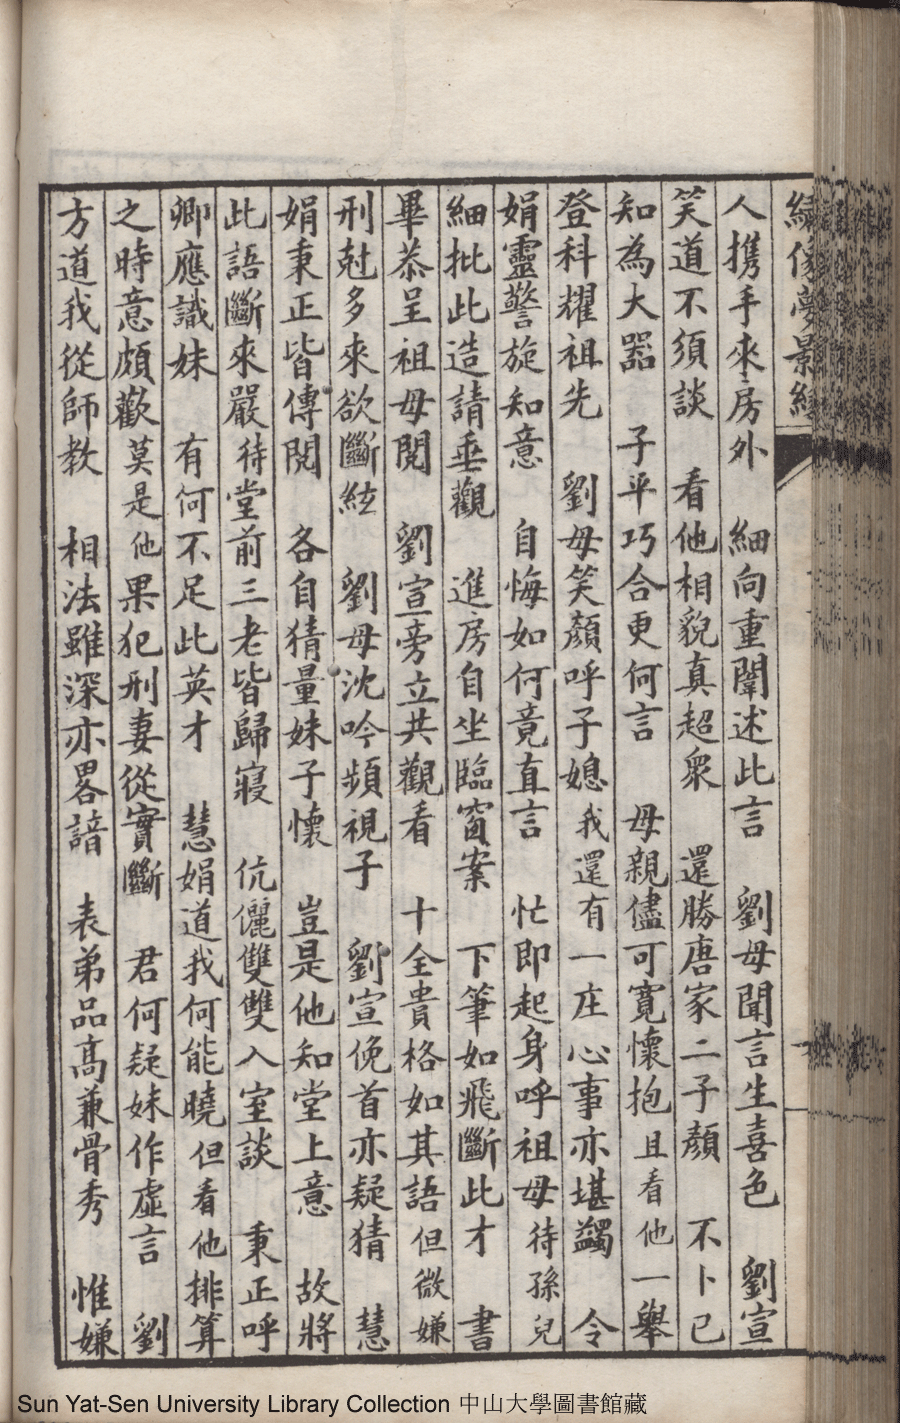 繡像夢影緣
人攜手來房外 細向重闈述此言 劉母聞言生喜色 劉宣
笑道不須談 看他相貌真超衆 還勝唐家二子顏 不卜已
知為大器 子平巧合更何言 母親儘可寬懷抱 且看他一舉
登科耀祖先 劉母笑顏呼子媳 我還有一庄心事亦堪蠲 令
娟靈警旋知意 自悔如何竟直言 忙即起身呼祖母 待孫兒
細批此造請垂觀 進房自坐臨窗案 下筆如飛斷此才 書
畢恭呈祖母閱 劉宣旁立共觀看 十全貴格如其語 但微嫌
刑尅多來欲斷絃 劉母沈吟頻視子 劉宣俛首亦疑猜 慧
娟秉正皆傳閱 各自猜量妹子懷 豈是他知堂上意 故將
此語斷來嚴 待堂前三老皆歸寢 伉儷雙雙入室談 秉正呼
卿應識妹 有何不足此英才 慧娟道我何能曉 但看他排算
之時意頗歡 莫是他果犯刑妻從實斷 君何疑妹作虛言 劉
方道我從師教 相法雖深亦畧諳 表弟品高兼骨秀 惟嫌
Sun Yat-Sen University Library Collection 中山大學圖書館藏